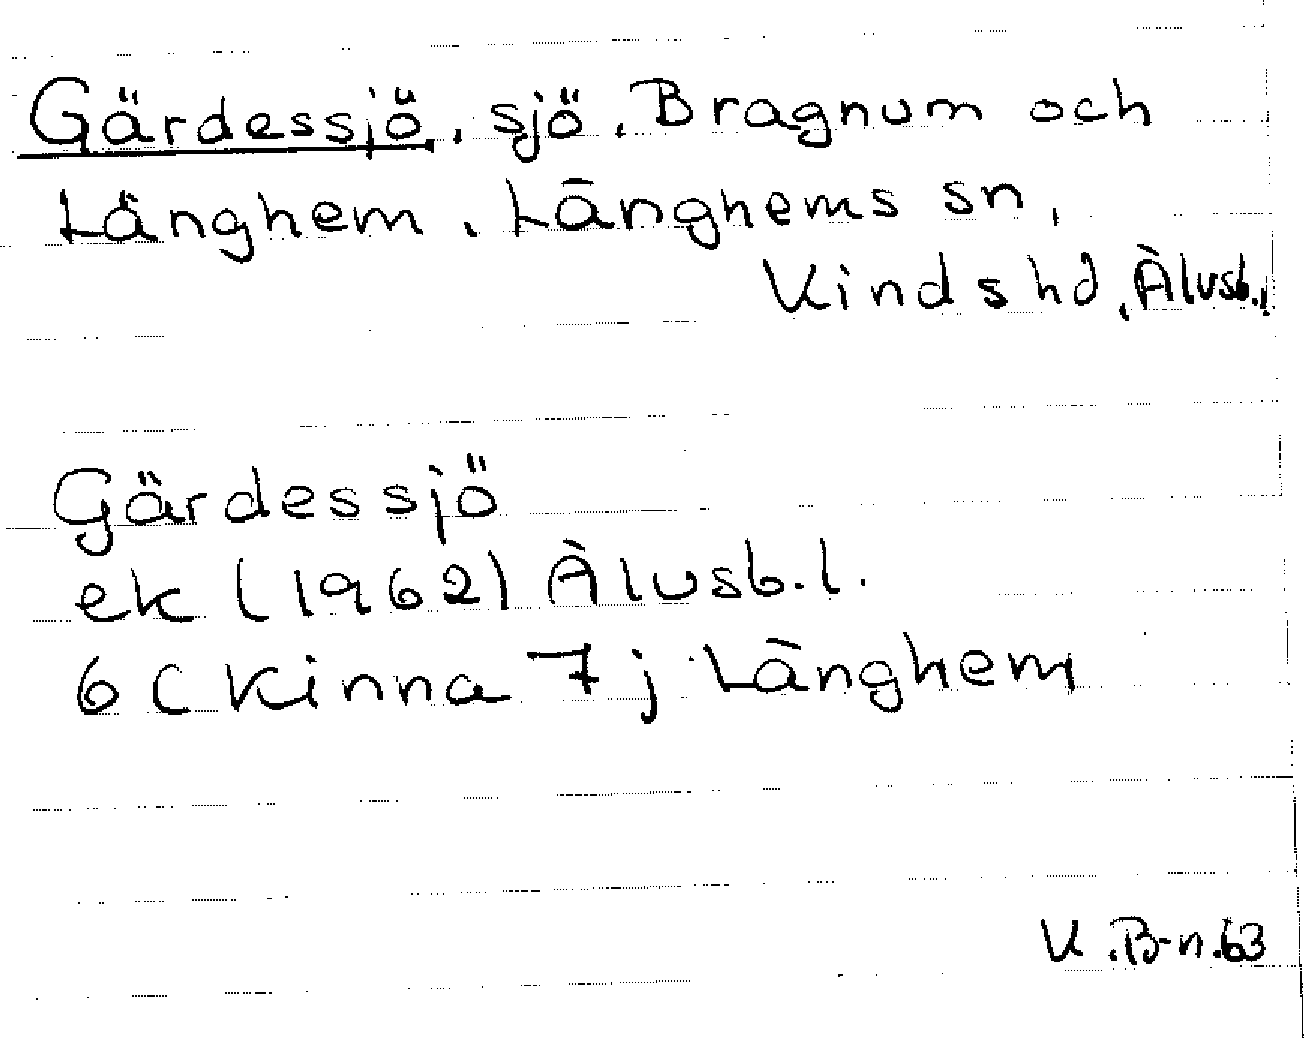 Gärdessjö, sjö, Bragnum och
Långhem, Långhems sn,
Kinds hd, Älvsb.,
Gärdessjö
ek (1962) Älvsb.l.
6C Kinna 7j Långhem
K.B-n.63